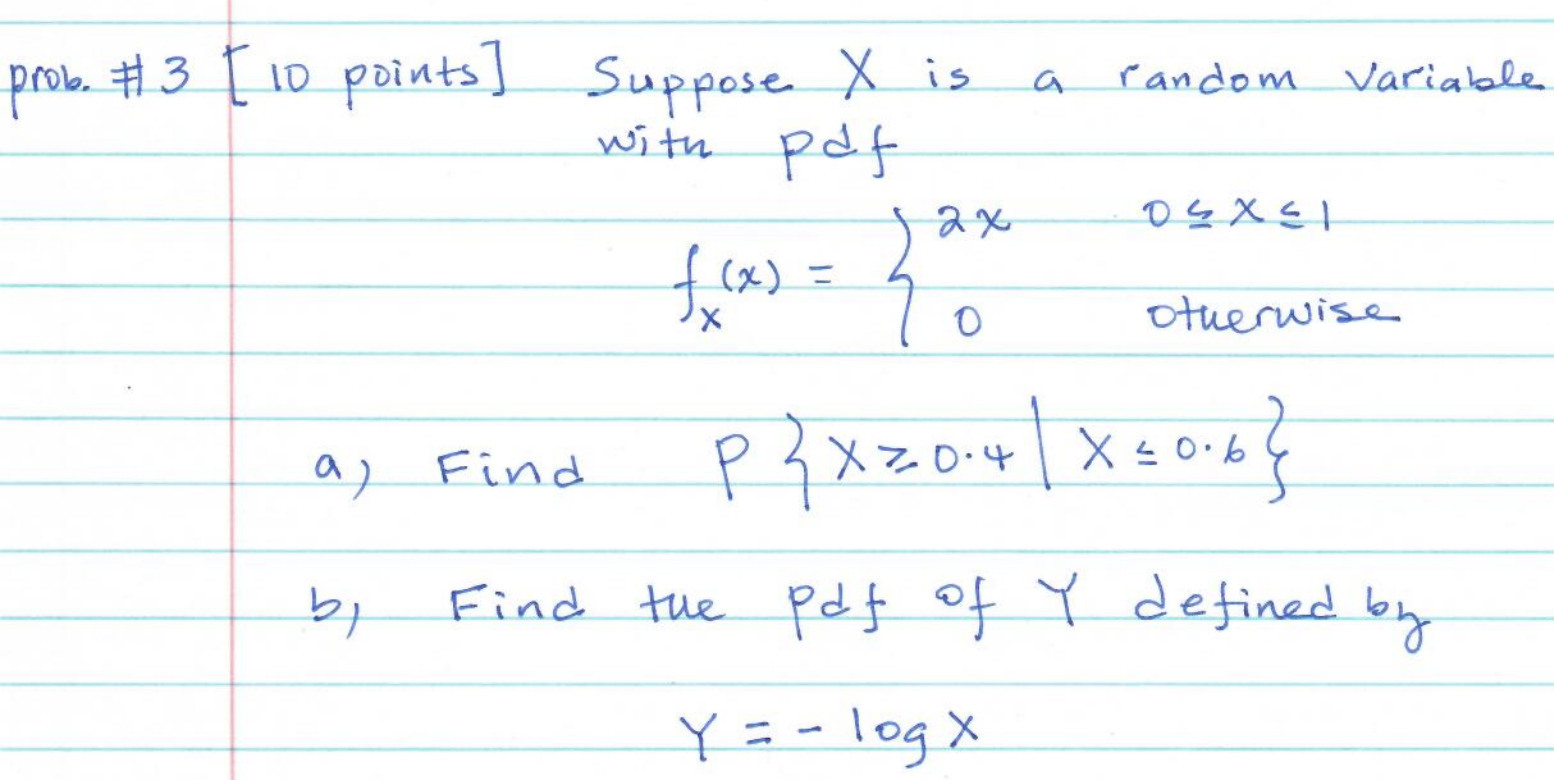 prob. #3 [10 points] Suppose X is a random variable
with pdf
f_X(x) = { 2x 0 ≤ x ≤ 1
0 otherwise
a) Find P{X ≥ 0.4 | X ≤ 0.6}
b) Find the pdf of Y defined by
Y = - log X